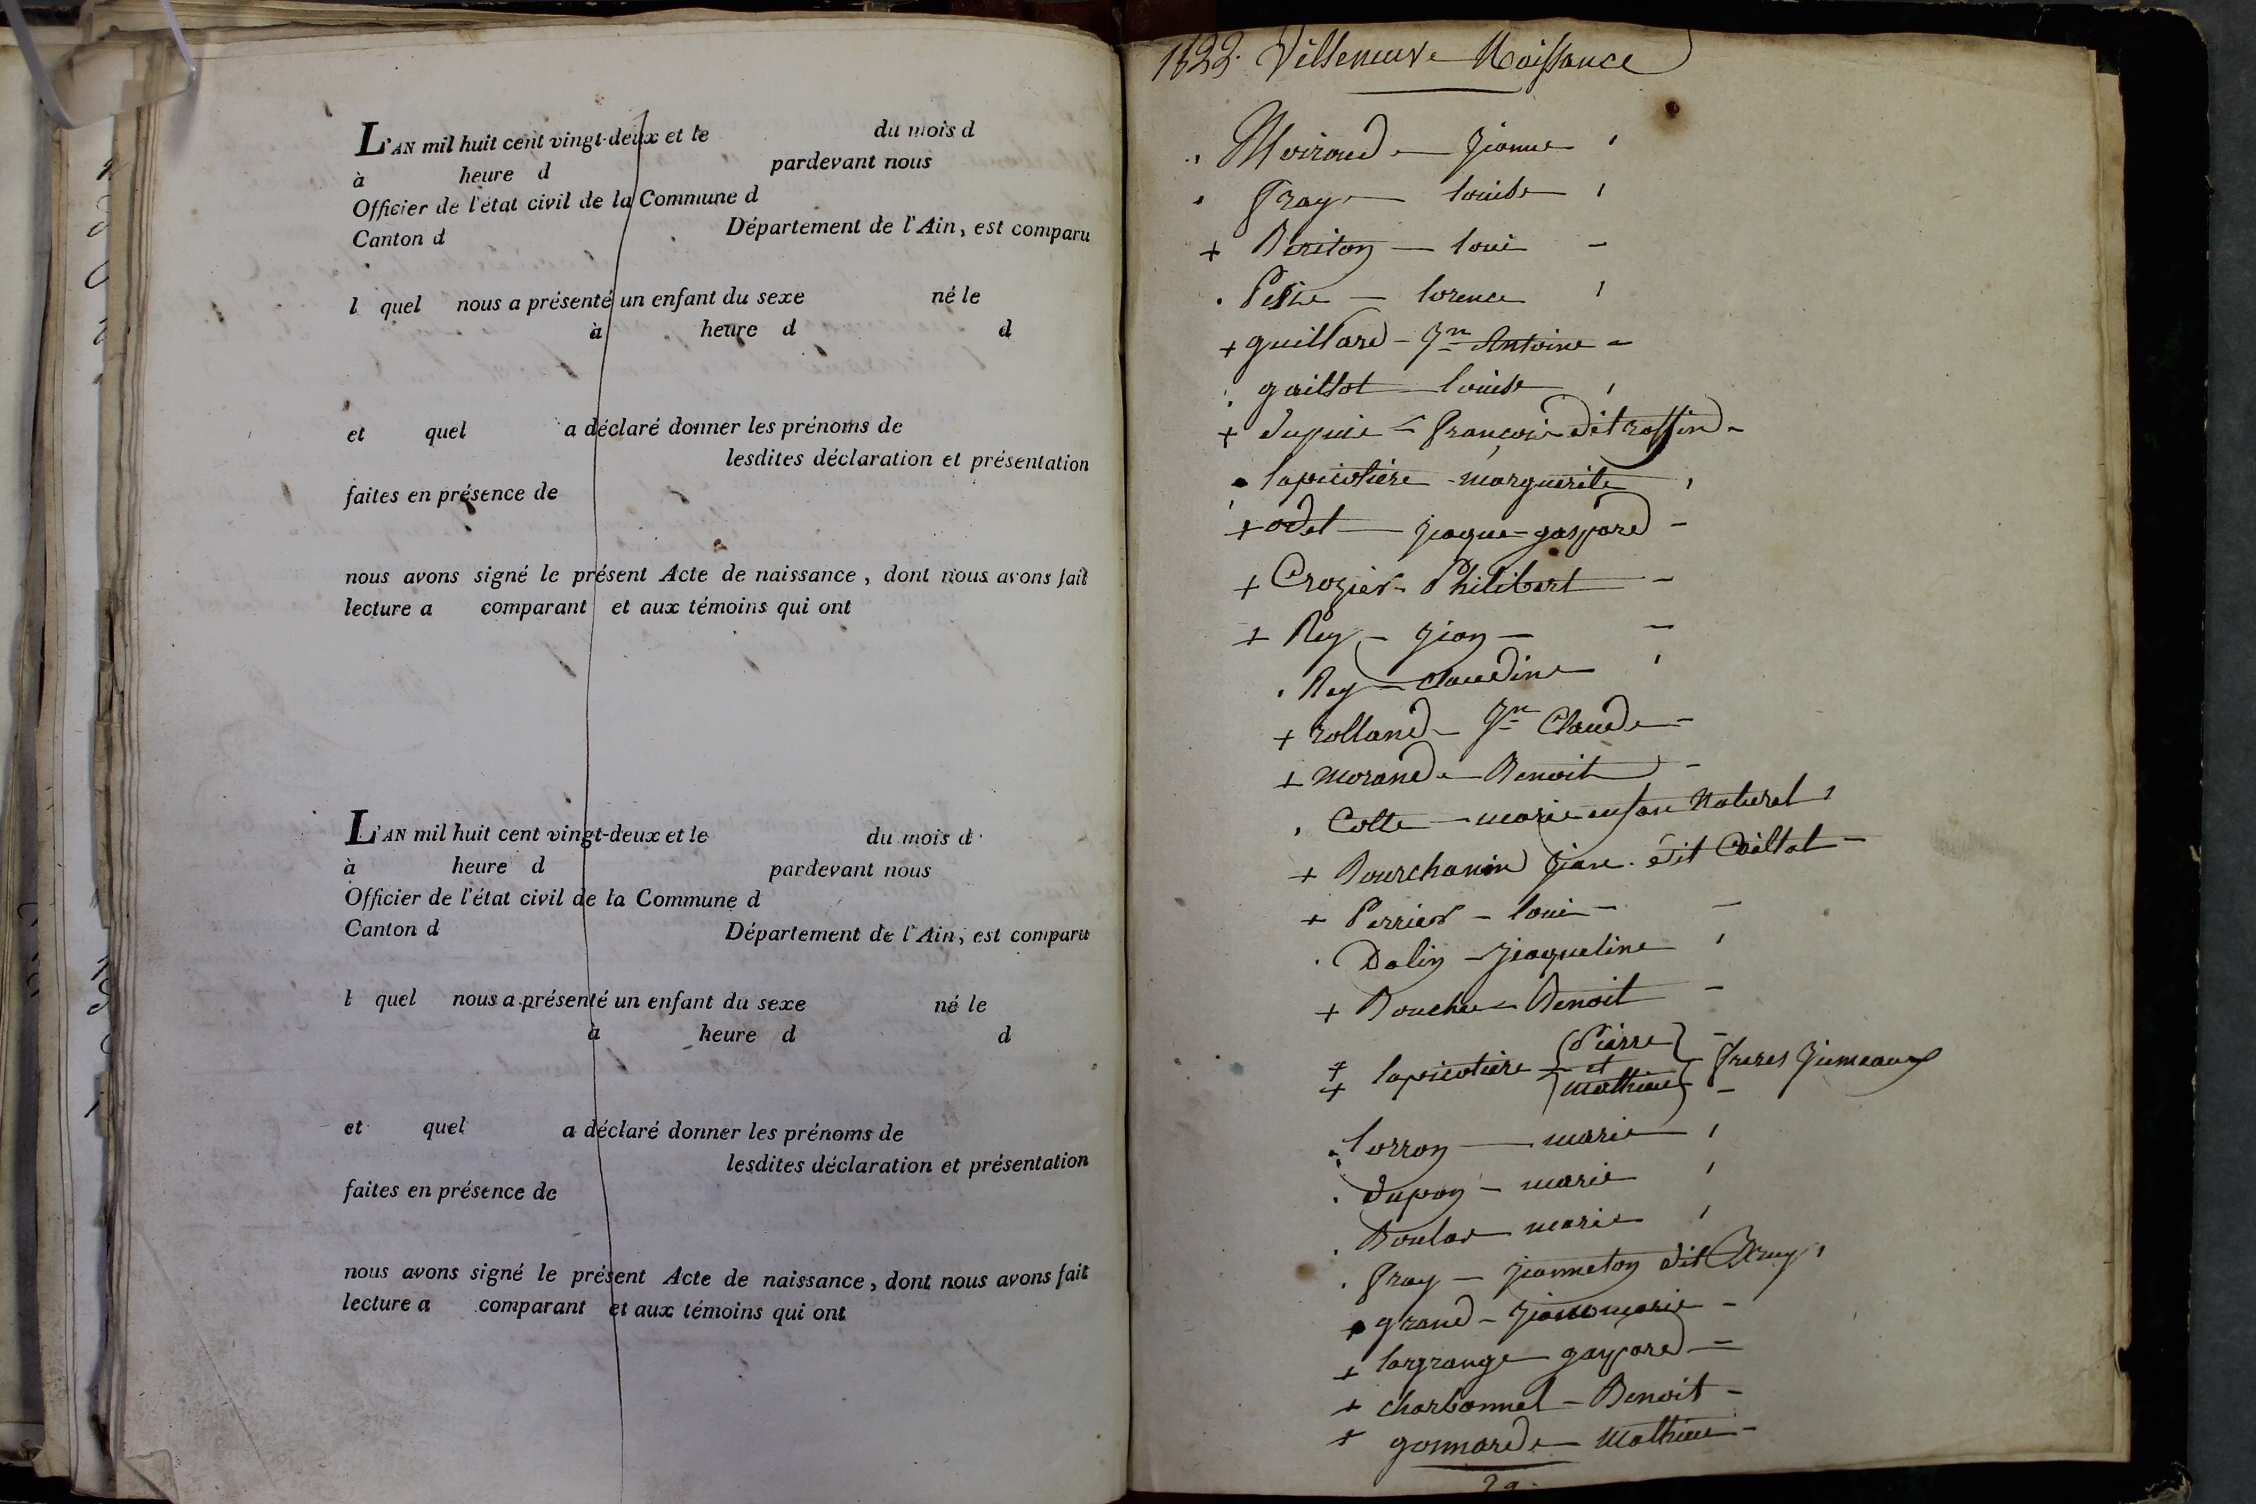 L'AN mil huit cent vingt-deux et le du mois d
à heure d pardevant nous
Officier de l'état civil de la Commune d
Canton d Département de l'Ain, est comparu
l quel nous a présenté un enfant du sexe né le
à heure d d
et quel a déclaré donner les prénoms de
lesdites déclaration et présentation
faites en présence de
nous avons signé le présent Acte de naissance, dont nous avons fait
lecture a comparant et aux témoins qui ont
L'AN mil huit cent vingt-deux et le du mois d
à heure d pardevant nous
Officier de l'état civil de la Commune d
Canton d Département de l'Ain, est comparu
l quel nous a présenté un enfant du sexe né le
à heure d d
et quel a déclaré donner les prénoms de
lesdites déclaration et présentation
faites en présence de
nous avons signé le présent Acte de naissance, dont nous avons fait
lecture a comparant et aux témoins qui ont
1822. Villeneuve Naissance
Moiroud Jeanne
Fray louise
+ loui -
lorence
+ guillard - Jn Antoine -
gaillot louise
+ dupuie - François dit roffin -
lapicotière - marguerite
+ odet jaque-gaspard -
+ Crozier - Philibert -
+ Rey - Jean - -
Rey - Claudine
+ rolland - Jn Claude -
+ morand - Benoit -
Colte - marie enfan Naturel
+ Bourchanin Jean. dit -
+ Perrier - loui - -
Dalin - Jaqueline
+ Bouchu - Benoit -
+ + lapicotière - Pierre et mathieu - freres Jumeaux
lorron - marie
dupon - marie
Boular marie
Fray - jeanneton dit
+ grand - jean marie -
+ lagrange gaspard -
+ charbonnel - Benoit -
+ gonnard - Mathieu -
29.